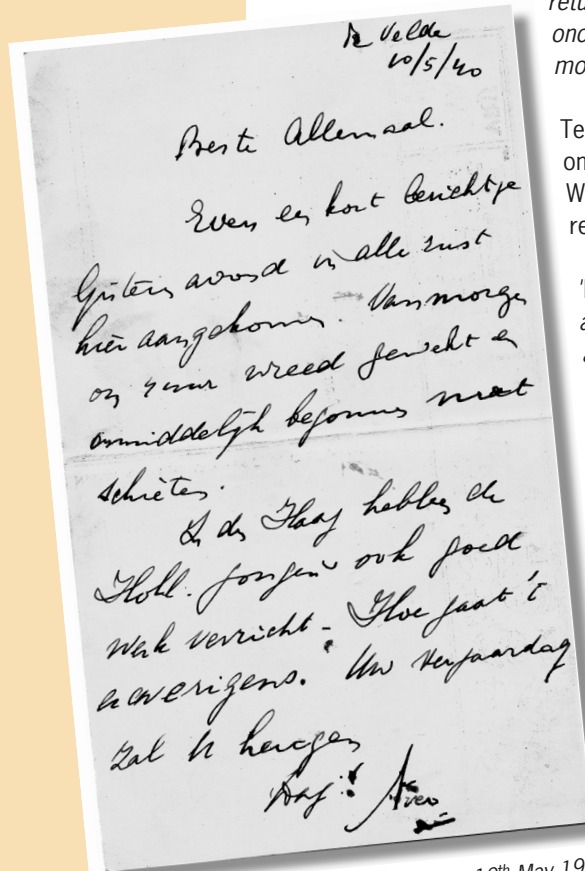 te Velde
10/5/40
Beste Allemaal.
Even een kort berichtje
Gisteren avond in alle rust
hier aangekomen. Vanmorgen
om 4 uur wreed gewekt en
onmiddelijk begonnen met
schieten.
In den Haag hebben de
Holl. jongens ook goed
werk verricht - Hoe gaat 't
overigens. Uw verjaardag
zal U heugen
Dag!
retu
onc
mo
Te
on
W
re
10th May 19